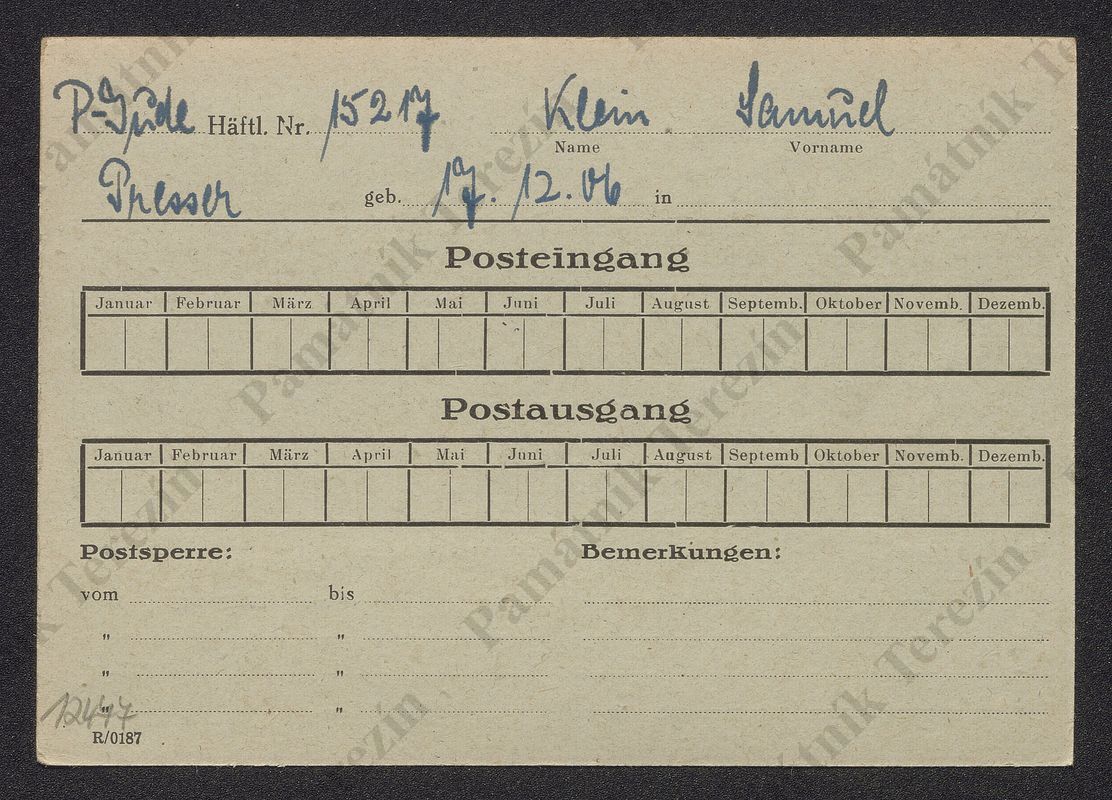 P-Jude Häftl. Nr. 15217 Klein Samuel
Name Vorname
Presser geb. 17. 12. 06 in
Posteingang
Januar Februar März April Mai Juni Juli August Septemb. Oktober Novemb. Dezemb.
Postausgang
Januar Februar März April Mai Juni Juli August Septemb Oktober Novemb. Dezemb.
Postsperre: Bemerkungen:
vom bis
" "
" "
" "
12447
R/0187
Památník Terezín